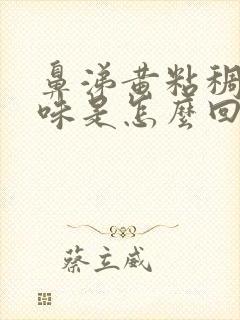 鼻涕黄粘稠
味是怎麼回
蔡立威